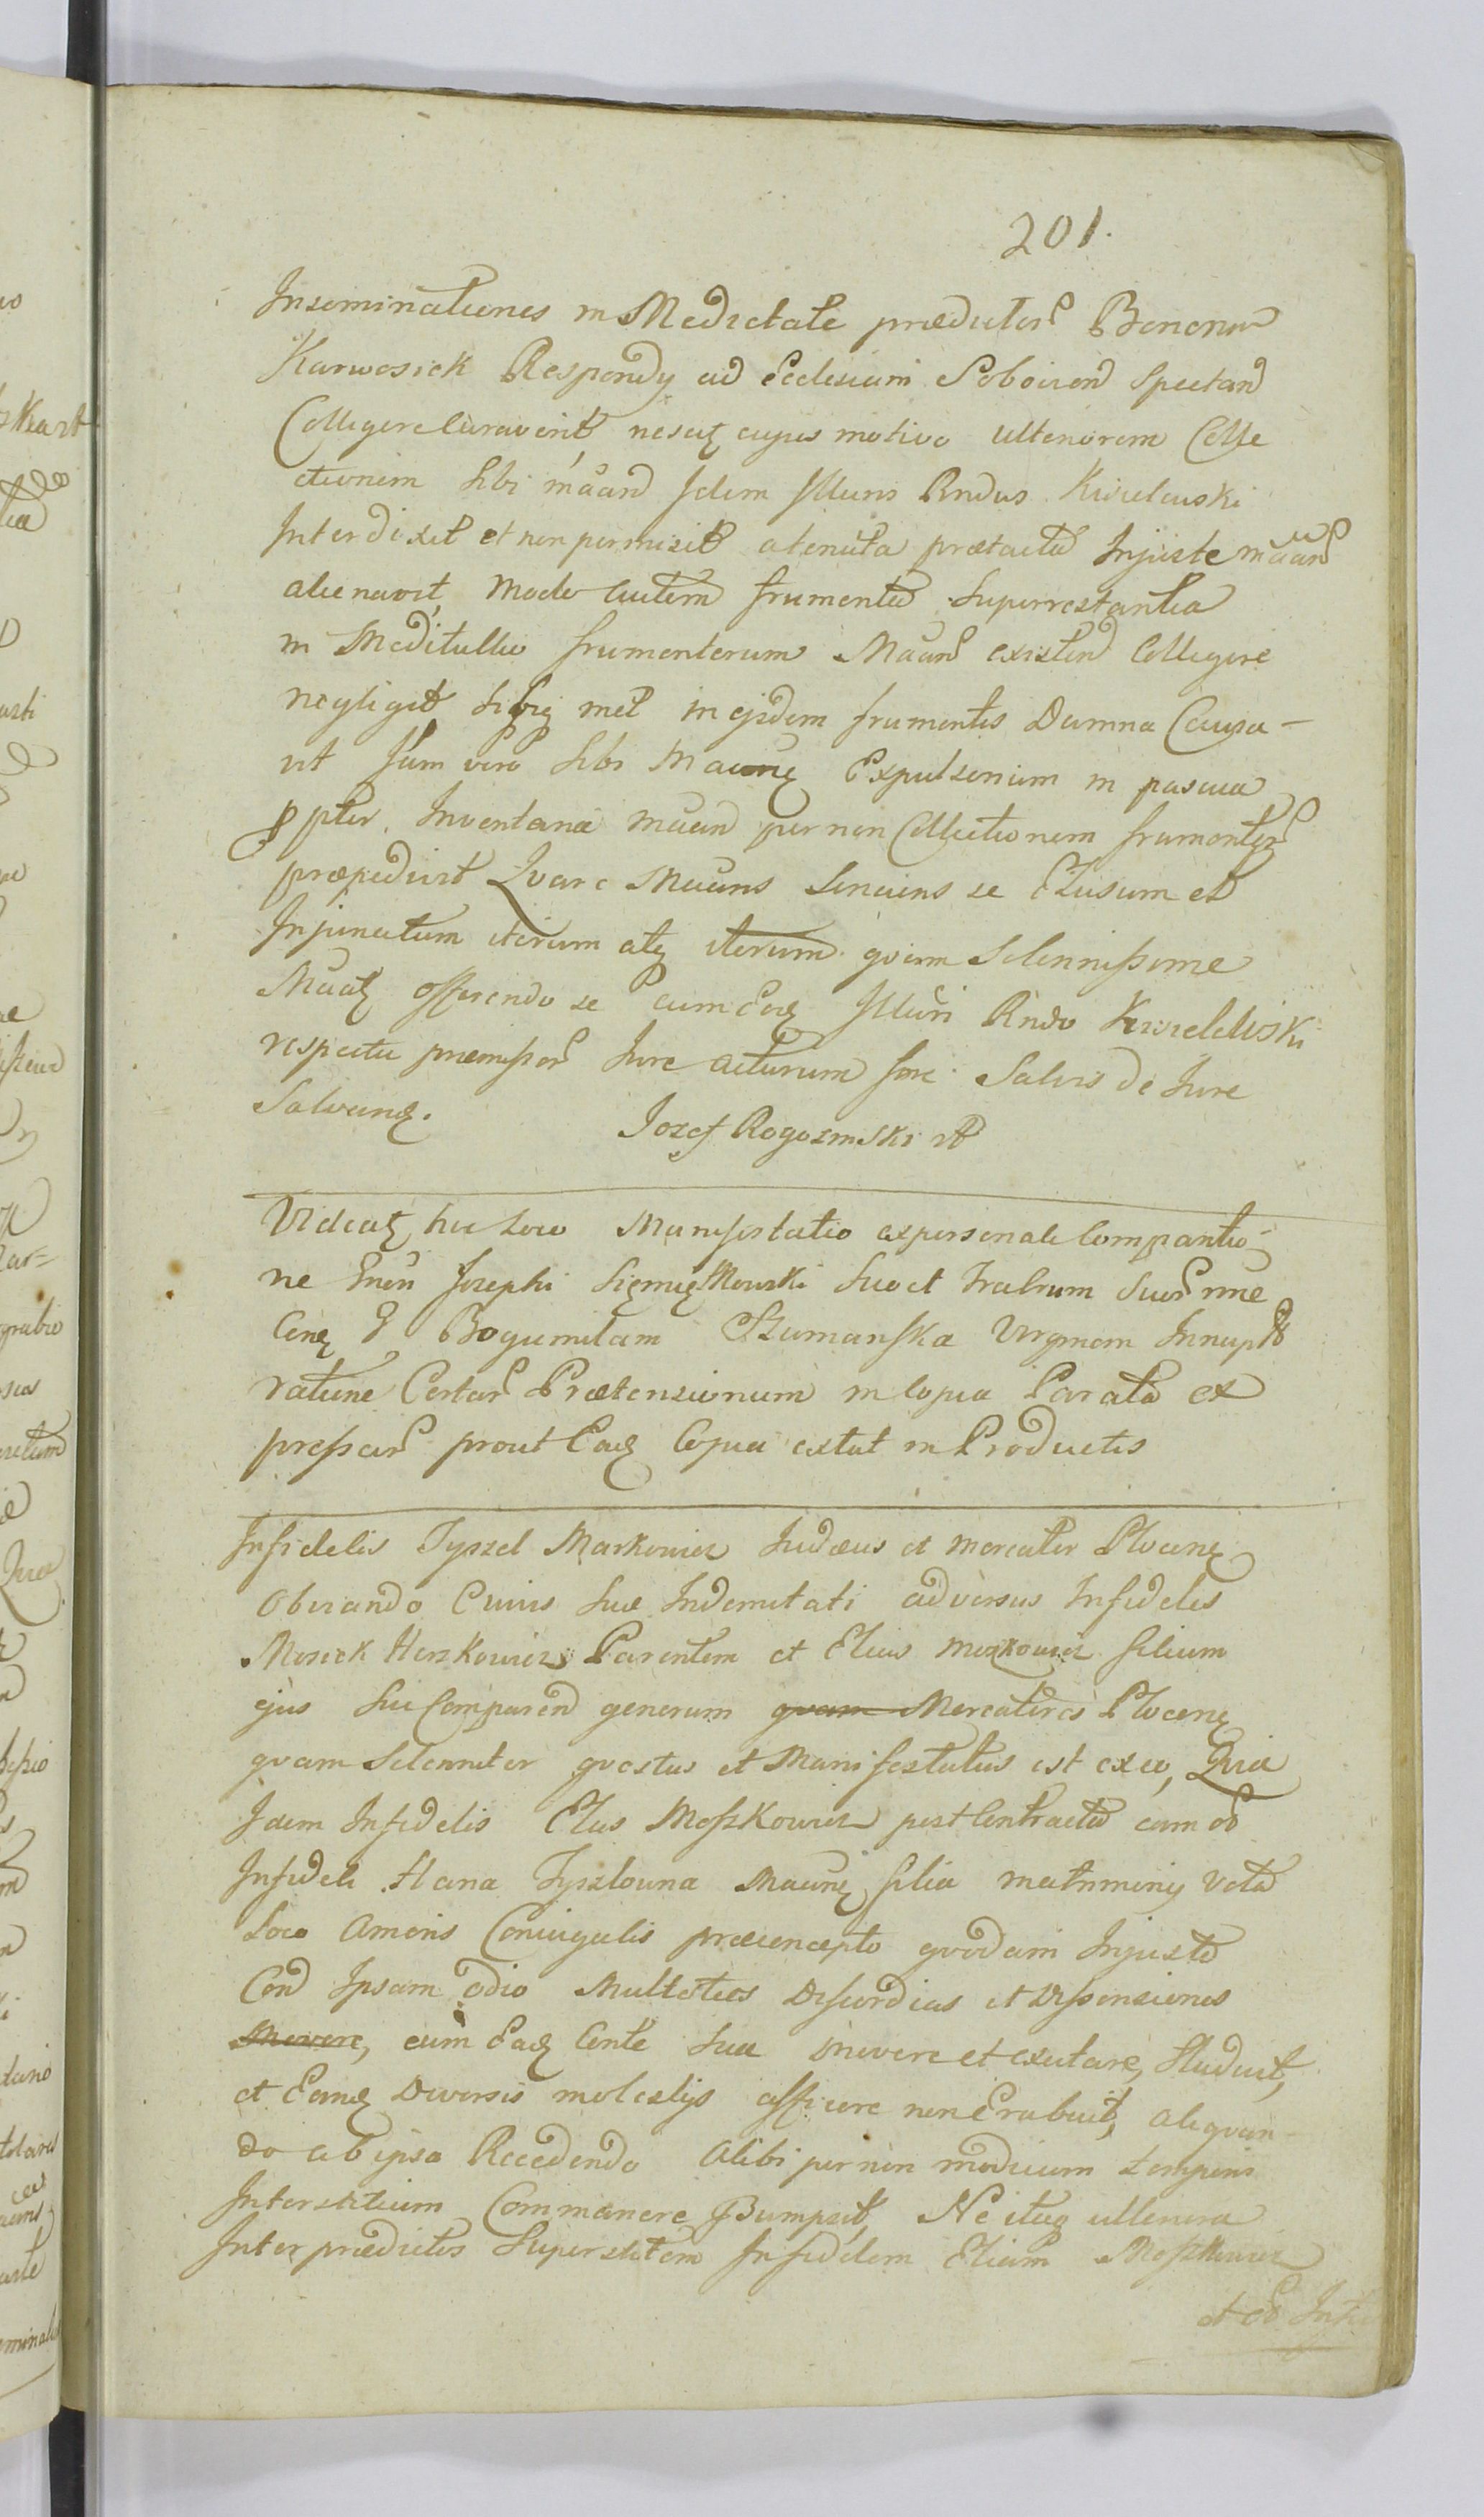 201.
Inseminationes in Medietate prædictor Bonorum
Karwosiek Respondy ad Ecclesiam Soboien Spectan
Colligere curaverit nescitq cujus motivo ulteriorem Colle
ctionem Sibi maan Idem Illuris Rndus
Interdixit et non permisit attenuta prætacta Injuste maan
alienavit, Modo autem frumenta Superrestantia
in Meditullio frumentorum Maan existen Colligere
negligit sibiq met in ejsdem frumentis Damna Causa-
vit Jam vero Sibi Maanq Expulsionem in pascua
ppter Inventaria maan per non Collectionem frumentor
præpedivit Qvare Maans Sentiens se Elusum et
Injuriatum iterum atq iterum qvam Solennissime
Maatq offerendo se cum Eodq Illuri Rndo Kwieleuski
respectu præmissor Jure acturum fore Salvis de Jure
Salvandq.
Jozef Rogozinski
Videatq hic Loco Manifestatio ex personali Comparitio-
ne Gnen Josephi suo et Fratrum Suor nne
Bogumilam Szumanska Virginem Innupt
ratione Certar Prætensionum in Copia Parata ex
pressar prout Eadq Copia extat in Productis
Infidelis Tyszel Markowicz Judæus et mercator Plocenq
Obviando Cuivis Suæ Indemnitati adversus Infideles
Mosiek Herszkowicz Parentem et Elias Moszkowicz filium
ejus Sui Comparen generum qvam Mercatores Plocenq
qvam Solenniter qvestus et Manifestatus est ex eo, Qvia
Idem Infidelis Elias Moszkowicz post Contracta cum
Infideli Hana Tyszlowna Maanq filia matrimonij Vota
Loco Amoris Conjugalis præconcepto qvodam Injusto
Con Ipsam odio Multoties Discordias et Dissensiones
Movere, cum Eadq Conte Sua movere et excitare, Studuit,
et Eamq Diversis molestijs afficere non Erubuit, aliqvan
do ab ipsa Recedendo Alibi per non modicum temporis
Interstitium Commanere Neitaq ulteriora
Inter prædictos Superstitem Infidelem Eliam Moszkowicz
et